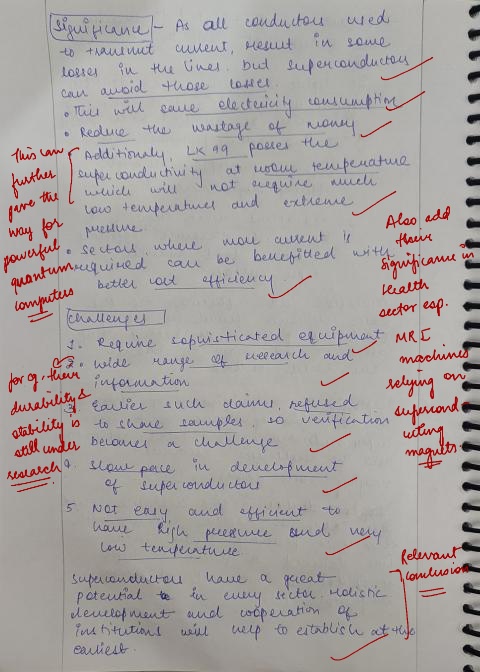 Significance - As all conductors used
to transmit current, result in some
losses in the lines. but superconductors
can avoid those losses.
• This will save electricity consumption
• Reduce the wastage of money
Additionally, LK 99 posses the
superconductivity at room temperature
which will not require much
low temperatures and extreme
pressure.
• Sectors where more current is
required can be benefitted with
better cost efficiency.
This can
further
pave the
way for
powerful
quantum
computers
Also add
their
significance in
Health
sector esp.
MRI
machines
relying on
supercond
ucting
magnets
Challenges
1. Require sophisticated equipment
2. wide range of research and
information
3. Earlier such claims, refused
to share samples, so verification
becomes a challenge
4. Slow pace in development
of superconductors
5. Not easy and efficient to
have high pressure and very
low temperature
for eg. their
durability &
stability is
still under
research
superconductors have a great
potential in every sector. Holistic
development and cooperation of
institutions will help to establish at the
earliest.
Relevant
conclusion